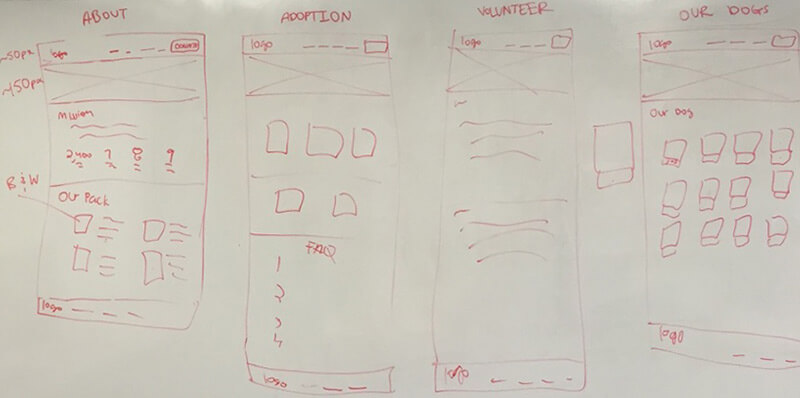 ABOUT
~50px
logo
DONATE
~150px
Mission
2,400 7 8 9
B & W
Our Pack
logo
ADOPTION
logo
FAQ
1
2
3
4
logo
VOLUNTEER
logo
logo
OUR DOGS
logo
Our Dog
logo